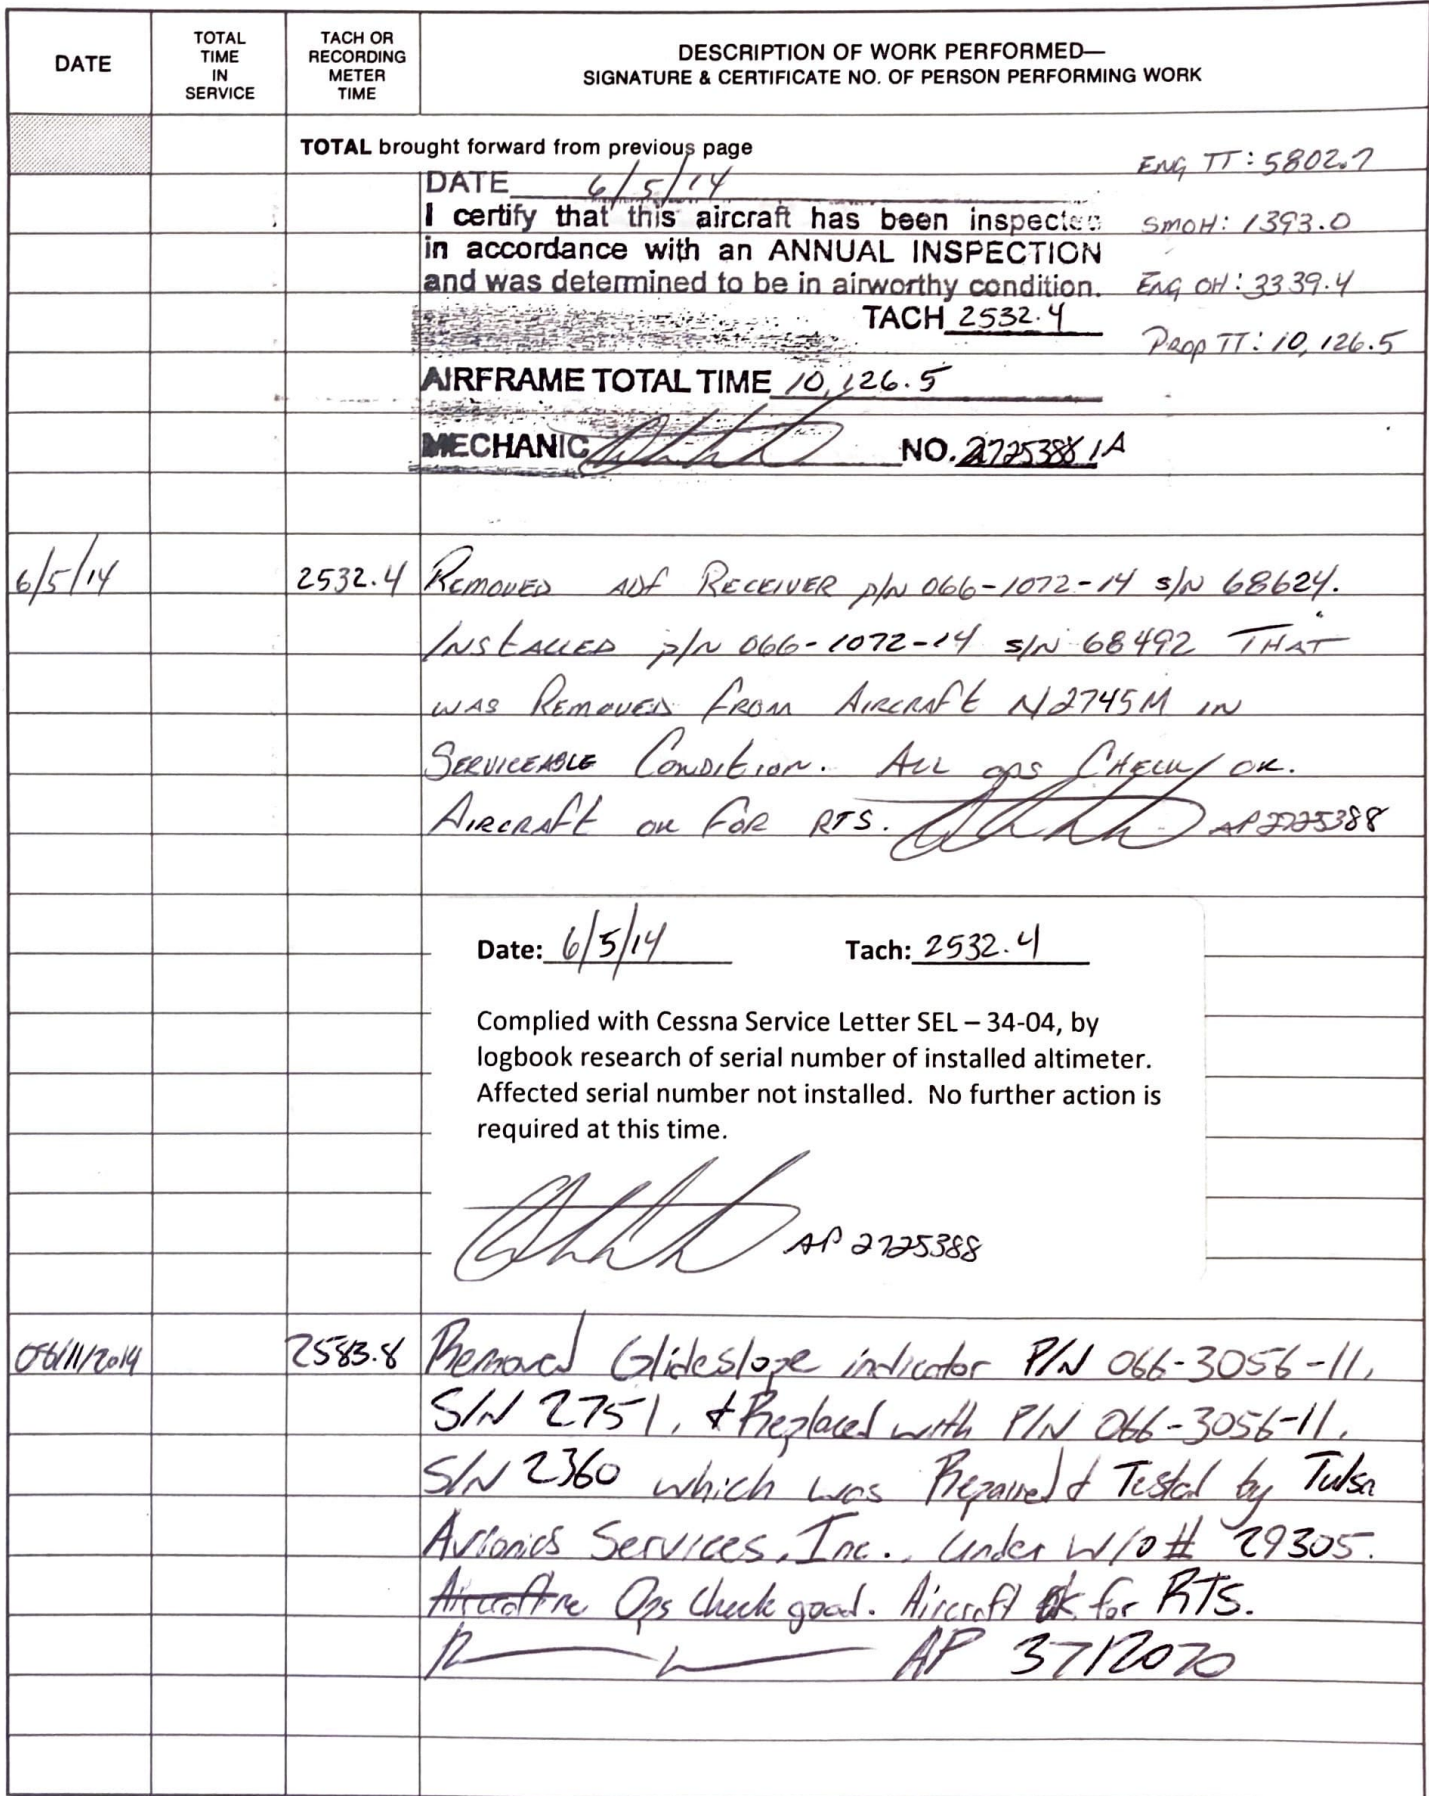 DATE
TOTAL
TIME
IN
SERVICE
TACH OR
RECORDING
METER
TIME
DESCRIPTION OF WORK PERFORMED—
SIGNATURE & CERTIFICATE NO. OF PERSON PERFORMING WORK
TOTAL brought forward from previous page
ENG TT: 5802.7
DATE 6/5/14
I certify that this aircraft has been inspected
SMOH: 1393.0
in accordance with an ANNUAL INSPECTION
and was determined to be in airworthy condition.
ENG OH: 3339.4
TACH 2532.4
PROP TT: 10,126.5
AIRFRAME TOTAL TIME 10,126.5
MECHANIC NO. 2725388 IA
6/5/14 2532.4 REMOVED ADF RECEIVER p/N 066-1072-14 s/N 68624.
INSTALLED p/N 066-1072-14 s/N 68492 THAT
WAS REMOVED FROM AIRCRAFT N2745M IN
SERVICEABLE CONDITION. ALL ops CHECK OK.
AIRCRAFT OK FOR RTS. AP 2725388
Date: 6/5/14 Tach: 2532.4
Complied with Cessna Service Letter SEL – 34-04, by
logbook research of serial number of installed altimeter.
Affected serial number not installed. No further action is
required at this time.
AP 2725388
06/11/2014 2583.8 Removed Glideslope indicator P/N 066-3056-11,
S/N 2751, & Replaced with P/N 066-3056-11,
S/N 2360 which was Repaired & Tested by Tulsa
Avionics Services, Inc., under W/O # 29305.
Ops Check good. Aircraft ok for RTS.
AP 3712070